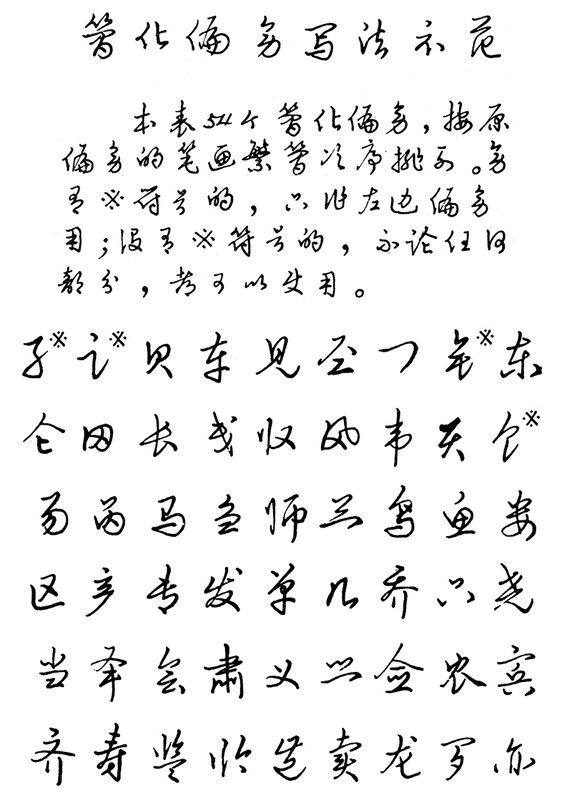 简化偏旁写法示范
本表54个简化偏旁，按原
偏旁的笔画繁简次序排列。旁
有※符号的，只作左边偏旁
用；没有※符号的，不论任何
部分，都可以使用。
纟※ 讠※ 贝 车 见 钅※ 东
仑 冈 长 戋 収 风 韦 饣※
呙 马 刍 师 鸟 鱼 娄
区 产 专 发 单 几 乔 只 尧
当 会 肃 义 佥 农 宾
齐 寿 卖 龙 罗 亦